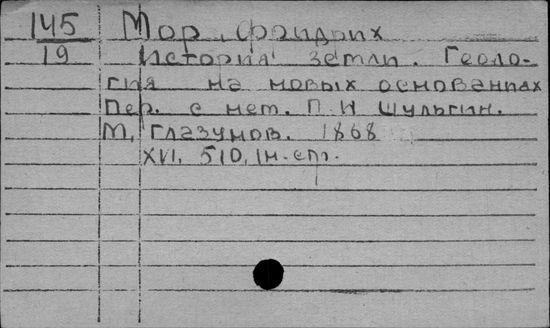 145 Мор, Фридрих
19 История земли. Геоло-
гия на новых основаниях
Пер. с нем. П.И Шульгин.
М, Глазунов. 1868
XVI, 510, 1н. стр.